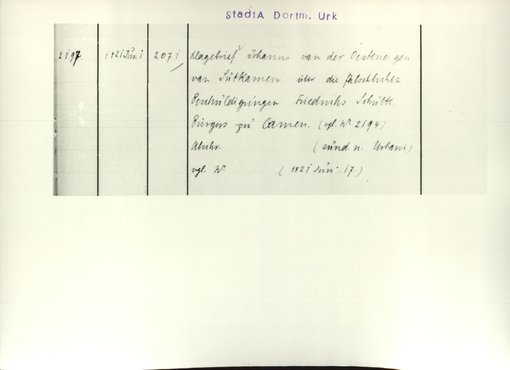 StadtA Dortm. Urk
2197 1421 Juni 1 2071 Klagebrief Johanns van der Oestene gen
van Sutkamen über die fälschlichen
Beschuldigungen Friedrichs Schutte,
Bürgers zu Camen. (vgl. Nr. 2194)
Abschr. (sund. n. Urbani)
vgl. Nr. (1421 Juni 17.)